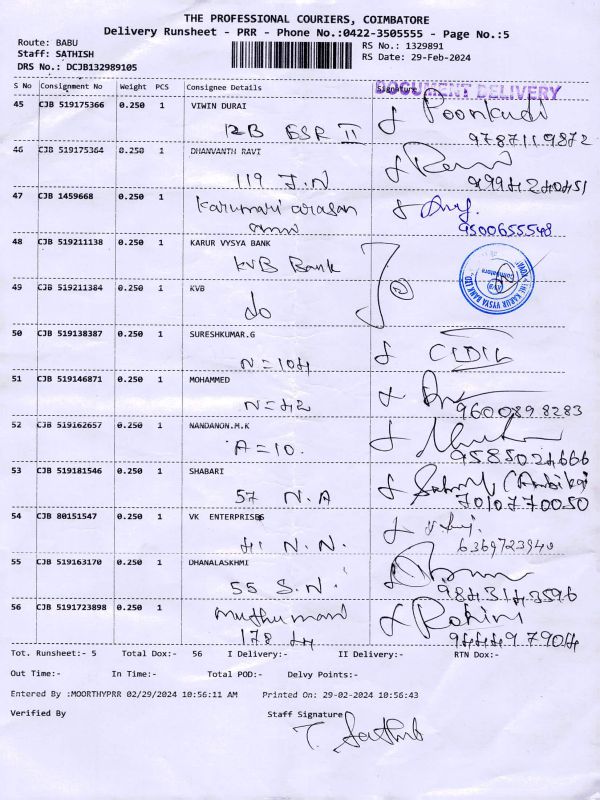 THE PROFESSIONAL COURIERS, COIMBATORE
Delivery Runsheet - PRR - Phone No.:0422-3505555 - Page No.:5
Route: BABU
RS No.: 1329891
Staff: SATHISH
RS Date: 29-Feb-2024
DRS No.: DCJB132989105
DOCUMENT DELIVERY
S No Consignment No Weight PCS Consignee Details Signature
45 CJB 519175366 0.250 1 VIWIN DURAI
12B ESR II
Poonkudi
9787119872
46 CJB 519175364 0.250 1 DHANVANTH RAVI
119 J.N
47 CJB 1459668 0.250 1 Karumari arasan
9500655548
48 CJB 519211138 0.250 1 KARUR VYSYA BANK
KVB Bank
49 CJB 519211384 0.250 1 KVB
do
THE KARUR VYSYA BANK LTD
Coimbatore
50 CJB 519138387 0.250 1 SURESHKUMAR.G
N=104
51 CJB 519146871 0.250 1 MOHAMMED
N=42
9600898283
52 CJB 519162657 0.250 1 NANDANON.M.K
A=10.
9585024666
53 CJB 519181546 0.250 1 SHABARI
57 N.A
7010770050
54 CJB 80151547 0.250 1 VK ENTERPRISES
41 N.N.
6369723940
55 CJB 519163170 0.250 1 DHANALASKHMI
55 S.N.
9843143596
56 CJB 5191723898 0.250 1 muthumani
178
Rohini
944497904
Tot. Runsheet:- 5 Total Dox:- 56 I Delivery:- II Delivery:- RTN Dox:-
Out Time:- In Time:- Total POD:- Delvy Points:-
Entered By :MOORTHYPRR 02/29/2024 10:56:11 AM Printed On: 29-02-2024 10:56:43
Verified By Staff Signature
T. Sathish